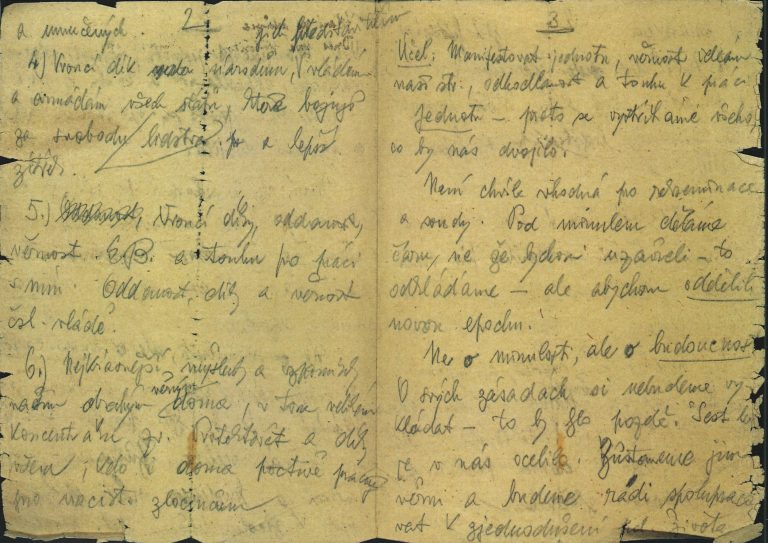 2
a umučených.
4.) Vroucí dík národům, vládám
a armádám všech států, které bojují
za svobodu lidstva a lepší
zítřek.
5.) Vroucí díky, oddanost,
věrnost E.B. a touhu po práci
s ním. Oddanost, díky a věrnost
čsl. vládě.
6.) Nejkrásnější myšlenky a vzpomínky
našim drahým věrným doma, v tom velkém
koncentráku zv. Protektorát a díky
všem, kdo i doma poctivě pracují
pro nacist. zločinům
3
Účel: Manifestovat jednotu, věrnost ideám
naší str., odhodlanost a touhu k práci
Jednotu – proto se vystříháme všeho,
co by nás dvojilo.
Není chvíle vhodná pro
a soudy. Pod minulem děláme
čáru, ne že bychom uzavřeli – to
odkládáme – ale abychom oddělili
novou epochu!
Ne o minulosti, ale o budoucnosti
O svých zásadách si nebudeme vy-
kládat – to by šlo pozdě. Šest let
se v nás ocelilo. Zůstaneme jim
věrni a budeme rádi spolupraco-
vat k zjednodušení života